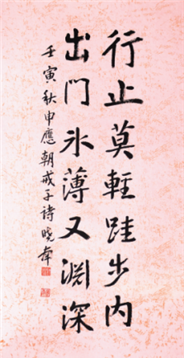 行止莫輕跬步内
出門氷薄又淵深
壬寅秋申應朝戒子詩曉韋